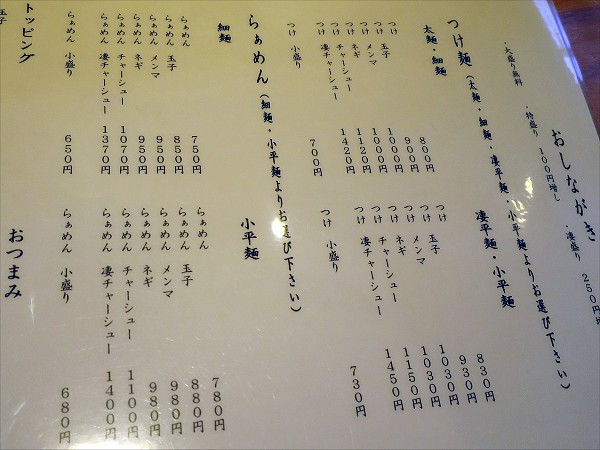 おしながき
・大盛り無料
・特盛り １００円増し
・凄盛り ２５０円増
つけ麺（太麺・細麺・凄平麺・小平麺よりお選び下さい）
太麺・細麺
つけ ８００円
つけ 玉子 ９００円
つけ メンマ １０００円
つけ ネギ １０００円
つけ チャーシュー １１２０円
つけ 凄チャーシュー １４２０円
つけ 小盛り ７００円
凄平麺・小平麺
つけ ８３０円
つけ 玉子 ９３０円
つけ メンマ １０３０円
つけ ネギ １０３０円
つけ チャーシュー １１５０円
つけ 凄チャーシュー １４５０円
つけ 小盛り ７３０円
らぁめん（細麺・小平麺よりお選び下さい）
細麺
らぁめん ７５０円
らぁめん 玉子 ８５０円
らぁめん メンマ ９５０円
らぁめん ネギ ９５０円
らぁめん チャーシュー １０７０円
らぁめん 凄チャーシュー １３７０円
らぁめん 小盛り ６５０円
小平麺
らぁめん ７８０円
らぁめん 玉子 ８８０円
らぁめん メンマ ９８０円
らぁめん ネギ ９８０円
らぁめん チャーシュー １１００円
らぁめん 凄チャーシュー １４００円
らぁめん 小盛り ６８０円
トッピング
玉子
おつまみ